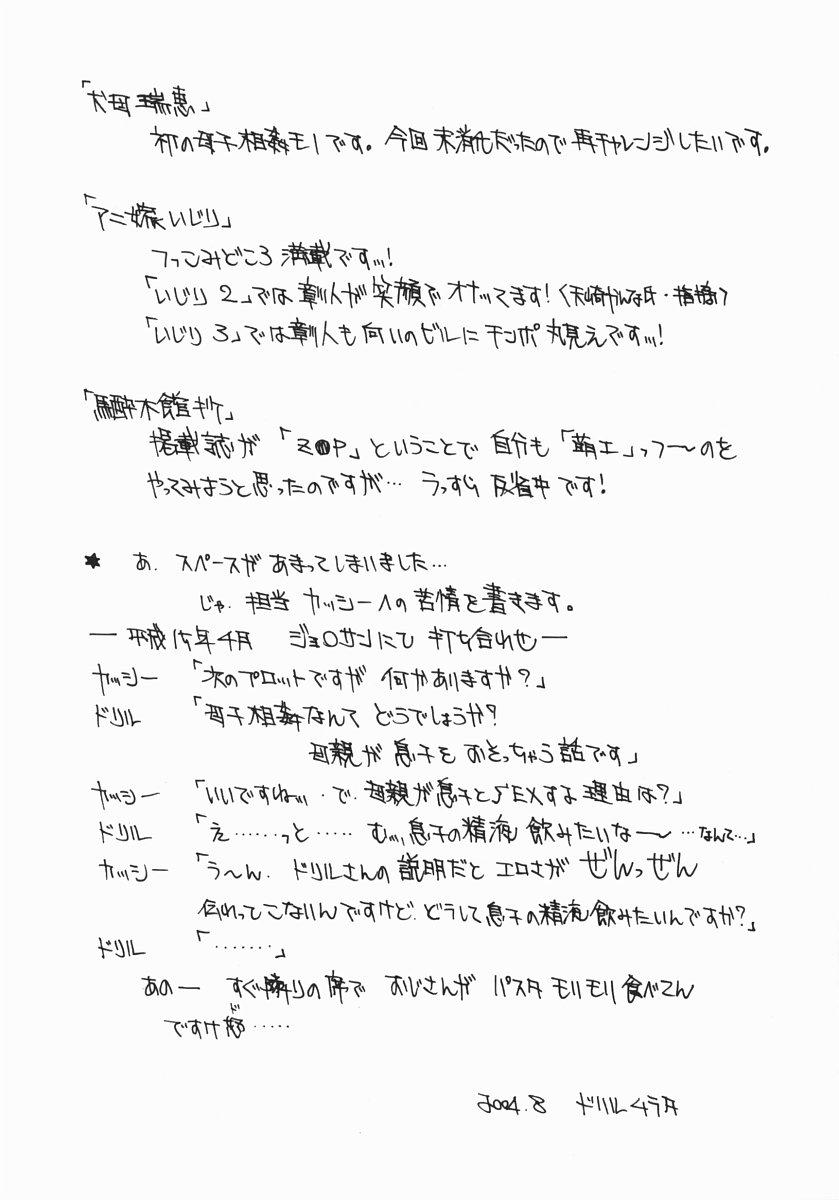 「犬母瑞恵」
初の母子相姦モノです。今回未消化だったので再チャレンジしたいです。
「アニ嫁いじり」
つっこみどころ満載ですッ!
「いじり2」では彰人が笑顔でオナッてます!〈天崎かんな氏・指摘〉
「いじり3」では彰人も向いのビルにチンポ丸見えですッ!
「馬酔木館
掲載誌が「Z●P」ということで自分も「萌エ」っつ〜のを
やってみようと思ったのですが… うっすら反省中です!
★ あ.スペースがあまってしまいました…
じゃ.担当カッシーへの苦情を書きます。
― 平成16年4月 ジョロサンにて打ち合わせ ―
カッシー 「次のプロットですが何かありますか?」
ドリル 「母子相姦なんてどうでしょうか?
母親が息子をおそっちゃう話です」
カッシー 「いいですねッ.で.母親が息子とSEXする理由は?」
ドリル 「え……っと…… むッ,息子の精液飲みたいな〜 …なんて…」
カッシー 「う〜ん.ドリルさんの説明だとエロさがぜんっぜん
伝わってこないんですけど.どうして息子の精液飲みたいんですか?」
ドリル 「………」
あの― すぐ隣りの席でおじさんがパスタモリモリ食べてん
ですけど……
2004.8 ドリルムラタ